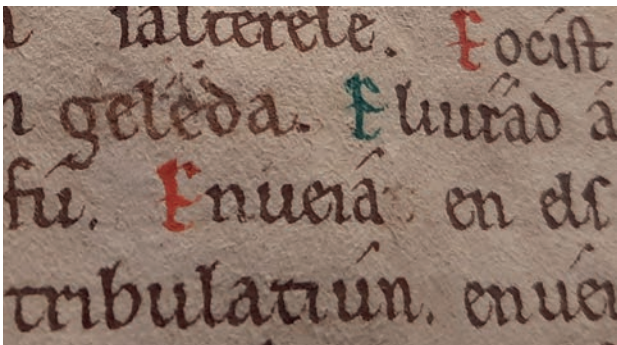 salterele. E ocist
geléda. E liurad á
fú. Enueiá en els
tribulatiún. enuei